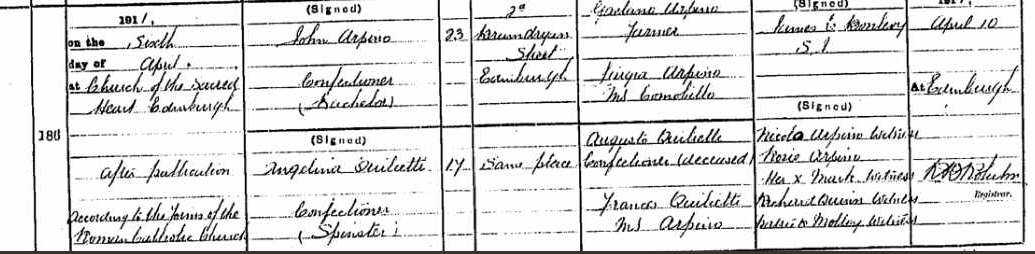 1917.
on the Sixth
day of April.
at Church of the Sacred
Heart Edinburgh
After publication
According to the forms of the
Roman Catholic Church
186
(Signed)
John Arpino
Confectioner
(Bachelor)
(Signed)
Angelina Quilietti
Confectioner
(Spinster)
23
17
2a
Street
Edinburgh
Same place
Gaetano Arpino
Farmer
Arpino
MS
Augusto Quilietti
Confectioner (deceased)
Frances Quilietti
MS Arpino
(Signed)
James
S.J.
(Signed)
Nicola Arpino Witness
Rosie Arpino
Her x Mark Witness
Richard Quinn Witness
Molloy Witness
1917,
April 10
At Edinburgh
Registrar.